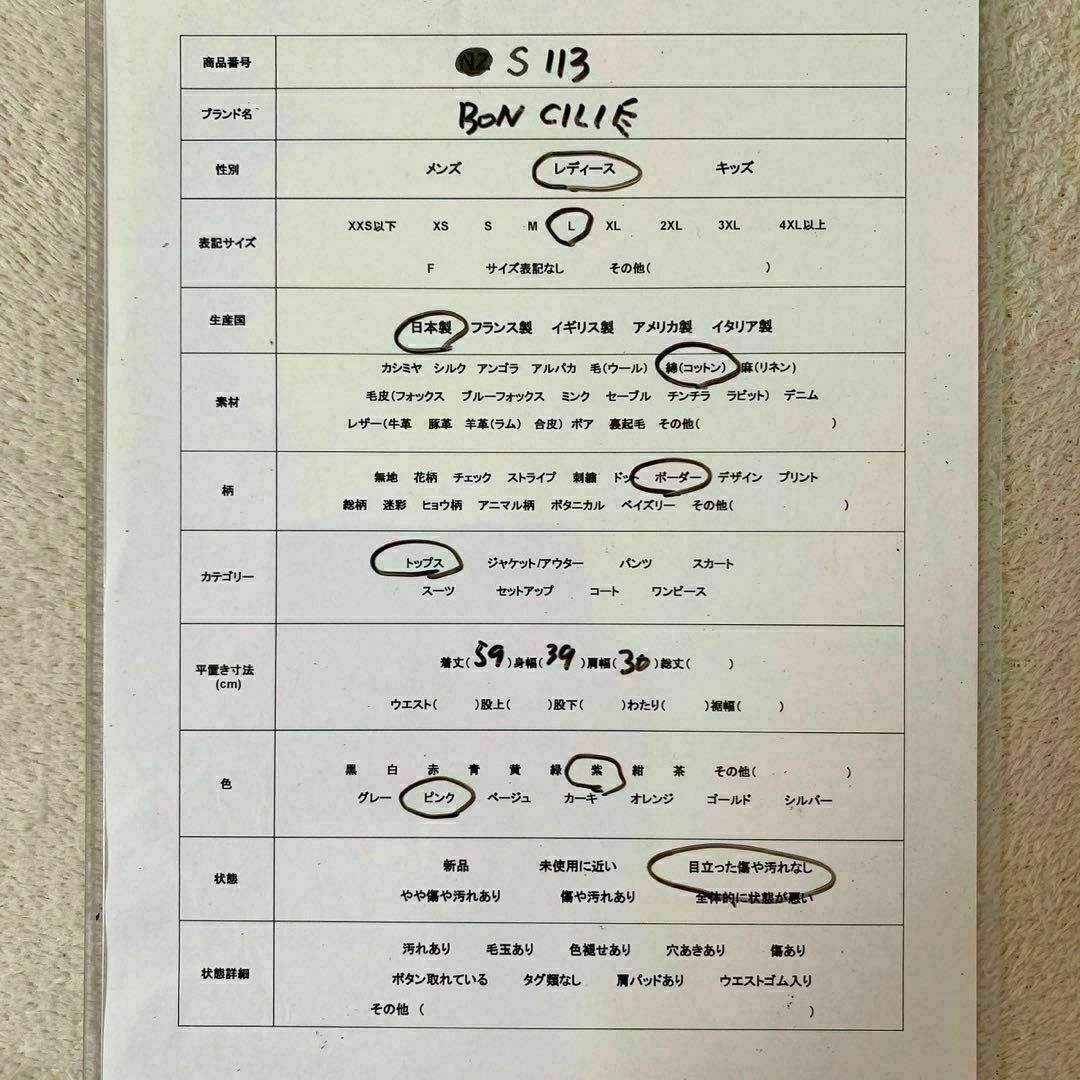 商品番号 NZ S 113
ブランド名 BON CILIE
性別 メンズ レディース キッズ
XXS以下 XS S M L XL 2XL 3XL 4XL以上
表記サイズ
F サイズ表記なし その他( )
生産国 日本製 フランス製 イギリス製 アメリカ製 イタリア製
カシミヤ シルク アンゴラ アルパカ 毛(ウール) 綿(コットン) 麻(リネン)
素材 毛皮(フォックス ブルーフォックス ミンク セーブル チンチラ ラビット) デニム
レザー(牛革 豚革 羊革(ラム) 合皮) ボア 裏起毛 その他( )
無地 花柄 チェック ストライプ 刺繍 ドット ボーダー デザイン プリント
柄
総柄 迷彩 ヒョウ柄 アニマル柄 ボタニカル ペイズリー その他( )
トップス ジャケット/アウター パンツ スカート
カテゴリー
スーツ セットアップ コート ワンピース
平置き寸法 着丈(59)身幅(39)肩幅(30)総丈( )
(cm)
ウエスト( )股上( )股下( )わたり( )裾幅( )
黒 白 赤 青 黄 緑 紫 紺 茶 その他( )
色
グレー ピンク ベージュ カーキ オレンジ ゴールド シルバー
新品 未使用に近い 目立った傷や汚れなし
状態
やや傷や汚れあり 傷や汚れあり 全体的に状態が悪い
汚れあり 毛玉あり 色褪せあり 穴あきあり 傷あり
状態詳細 ボタン取れている タグ類なし 肩パッドあり ウエストゴム入り
その他 ( )